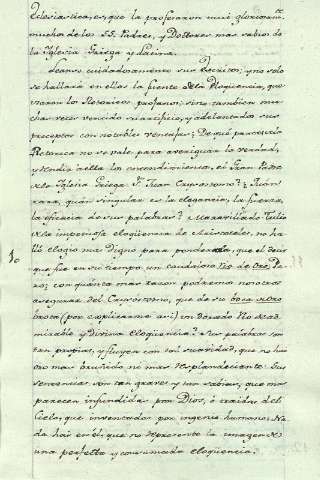 Eclesiasticas, es que la profesaron mui gloriosamte.
muchos de los SS. Padres, y Doctores mas sabios de
la Iglesia Griega y Latina.
Leanse cuidadosamente sus Escritos; y no solo
se hallará en ellos la fuente de la Eloquiencia, que
usaron los Retoricos profanos, sino tambien mu
chas veces vencido su artificio, y adelantados sus
preceptos con notables ventajas. De qué parte de la
Retorica no se vale para averiguar la verdad,
y rendir a ella los entendimientos, el Gran Padre
de la Iglesia Griega Sn. Juan Crysostomo? Quan
rara, quan singular es la elegancia, la fuerza,
la eficacia de sus palabras? Maravillado Tulio
de la impetuosa eloquiencia de Aristoteles, no ha
lló elogio mas digno para ponderarla, que el decir
que fue en su tiempo un caudaloso Rio de Oro. Pe
ro, con quánta mas razon podremos nosotros
asegurar del Crysostomo, que de su boca de oro
brota (por explicarme asi) un dorado Rio de ad
mirable y divina Eloquiencia? Sus palabras son
tan puras, y fluyen con tal suavidad, que no hai
oro mas bruñido ni mas resplandeciente. Sus
sentencias son tan graves y tan sabias, que mas
parecen infundidas por Dios, ó traidas del
Cielo, que inventadas por ingenio humano. Na
da hai en él, que no represente la imagen de
una perfecta y consumada eloquiencia.